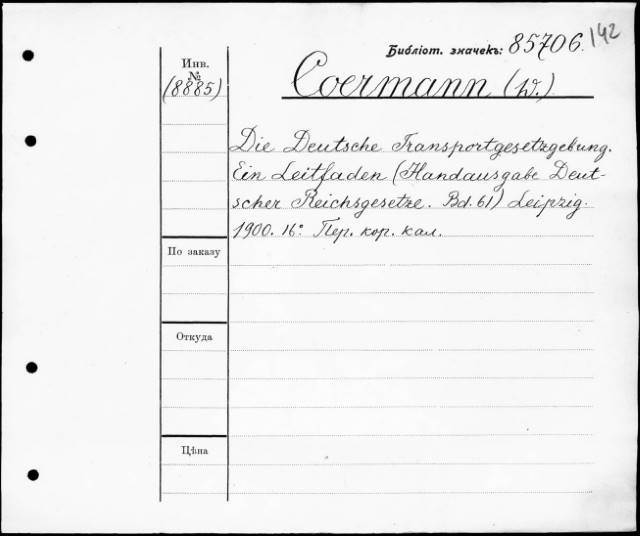 142
Библіот. значекъ: 85706.
Инв.
№
(8885)
Coermann (W.)
Die Deutsche Transportgesetzgebung.
Ein Leitfaden (Handausgabe Deut-
scher Reichsgesetze. Bd. 61) Leipzig.
1900. 16° Пер. кор. кал.
По заказу
Откуда
Цѣна